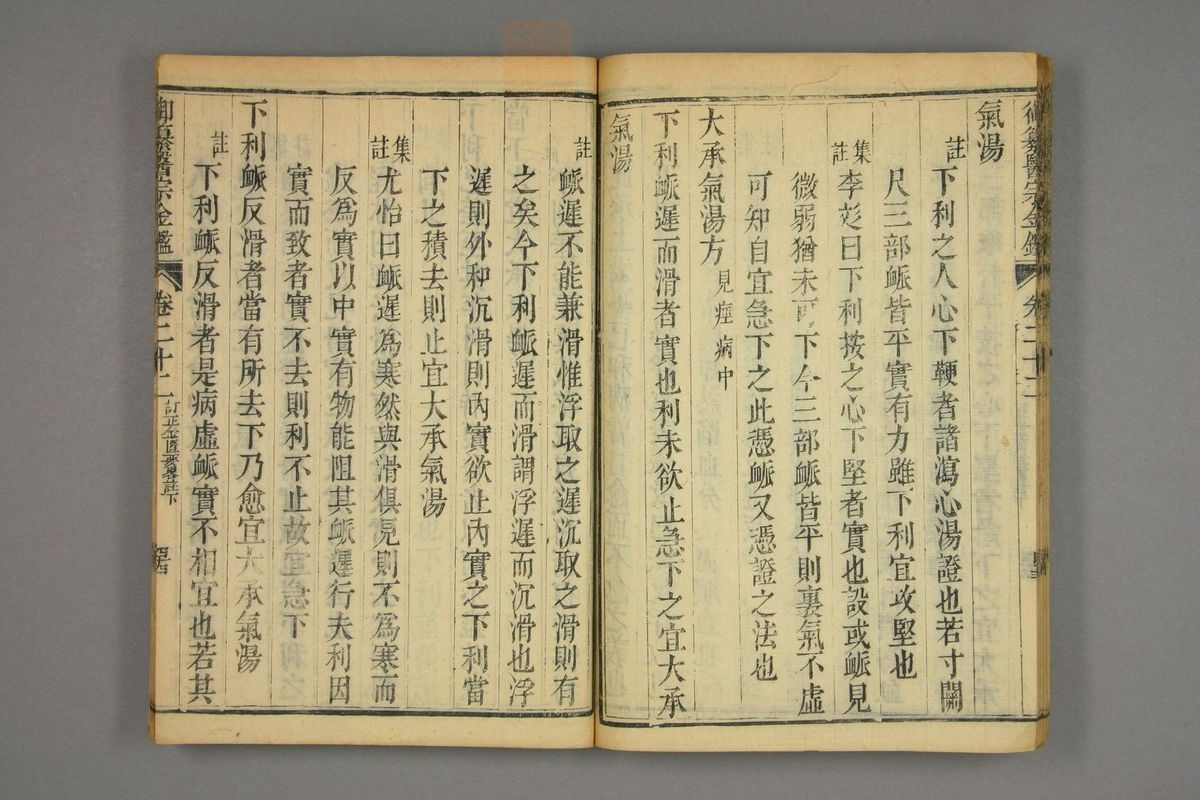 御纂醫宗金鑑 卷二十二
氣湯
註 下利之人心下鞕者諸瀉心湯證也若寸關
尺三部脈皆平實有力雖下利宜攻堅也
集註 李彣曰下利按之心下堅者實也設或脈見
微弱猶未可下今三部脈皆平則裏氣不虛
可知自宜急下之此憑脈又憑證之法也
大承氣湯方 見痙病中
下利脈遲而滑者實也利未欲止急下之宜大承
氣湯
註 脈遲不能兼滑惟浮取之遲沉取之滑則有
之矣今下利脈遲而滑謂浮遲而沉滑也浮
遲則外和沉滑則內實欲止內實之下利當
下之積去則止宜大承氣湯
集註 尤怡曰脈遲為寒然與滑俱見則不為寒而
反為實以中實有物能阻其脈遲行夫利因
實而致者實不去則利不止故宜急下
下利脈反滑者當有所去下乃愈宜大承氣湯
註 下利脈反滑者是病虛脈實不相宜也若其
御纂醫宗金鑑 卷二十二 訂正金匱要畧註下